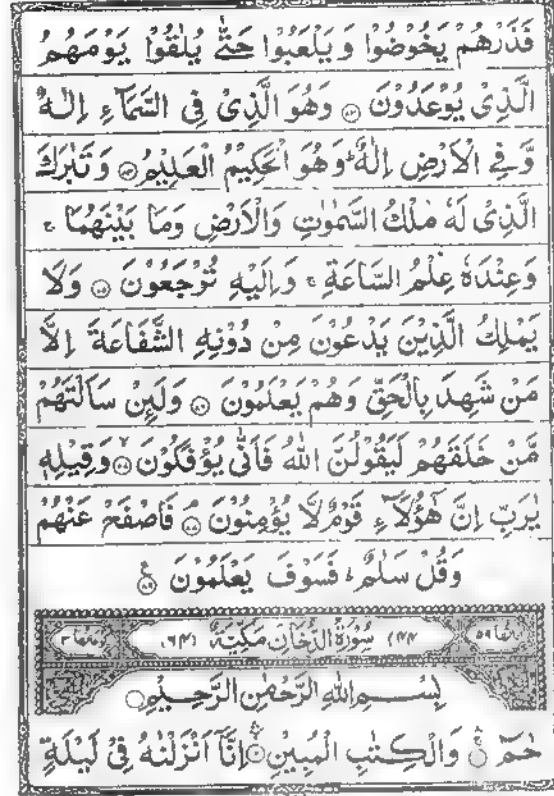 فَذَرْهُمْ يَخُوْضُوْا وَيَلْعَبُوْا حَتّٰى يُلٰقُوْا يَوْمَهُمُ
الَّذِىْ يُوْعَدُوْنَ ۝۸۳ وَهُوَ الَّذِىْ فِى السَّمَآءِ اِلٰهٌ
وَّفِى الْاَرْضِ اِلٰهٌ ؕ وَهُوَ الْحَكِيْمُ الْعَلِيْمُ ۝۸۴ وَتَبٰرَكَ
الَّذِىْ لَهٗ مُلْكُ السَّمٰوٰتِ وَالْاَرْضِ وَمَا بَيْنَهُمَا ۚ
وَعِنْدَهٗ عِلْمُ السَّاعَةِ ۚ وَاِلَيْهِ تُرْجَعُوْنَ ۝۸۵ وَلَا
يَمْلِكُ الَّذِيْنَ يَدْعُوْنَ مِنْ دُوْنِهِ الشَّفَاعَةَ اِلَّا
مَنْ شَهِدَ بِالْحَقِّ وَهُمْ يَعْلَمُوْنَ ۝۸۶ وَلَئِنْ سَاَلْتَهُمْ
مَّنْ خَلَقَهُمْ لَيَقُوْلُنَّ اللّٰهُ فَاَنّٰى يُؤْفَكُوْنَ ۝۸۷ وَقِيْلِهٖ
يٰرَبِّ اِنَّ هٰٓؤُلَآءِ قَوْمٌ لَّا يُؤْمِنُوْنَ ۝۸۸ فَاصْفَحْ عَنْهُمْ
وَقُلْ سَلٰمٌ ؕ فَسَوْفَ يَعْلَمُوْنَ ۝۸۹
اٰيَاتُهَا ۵۹ (۴۴) سُوْرَةُ الدُّخَانِ مَكِّيَّةٌ (۶۴) رُكُوْعَاتُهَا ۳
بِسْمِ اللّٰهِ الرَّحْمٰنِ الرَّحِيْمِ
حٰمٓ ۝۱ وَالْكِتٰبِ الْمُبِيْنِ ۝۲ اِنَّآ اَنْزَلْنٰهُ فِىْ لَيْلَةٍ